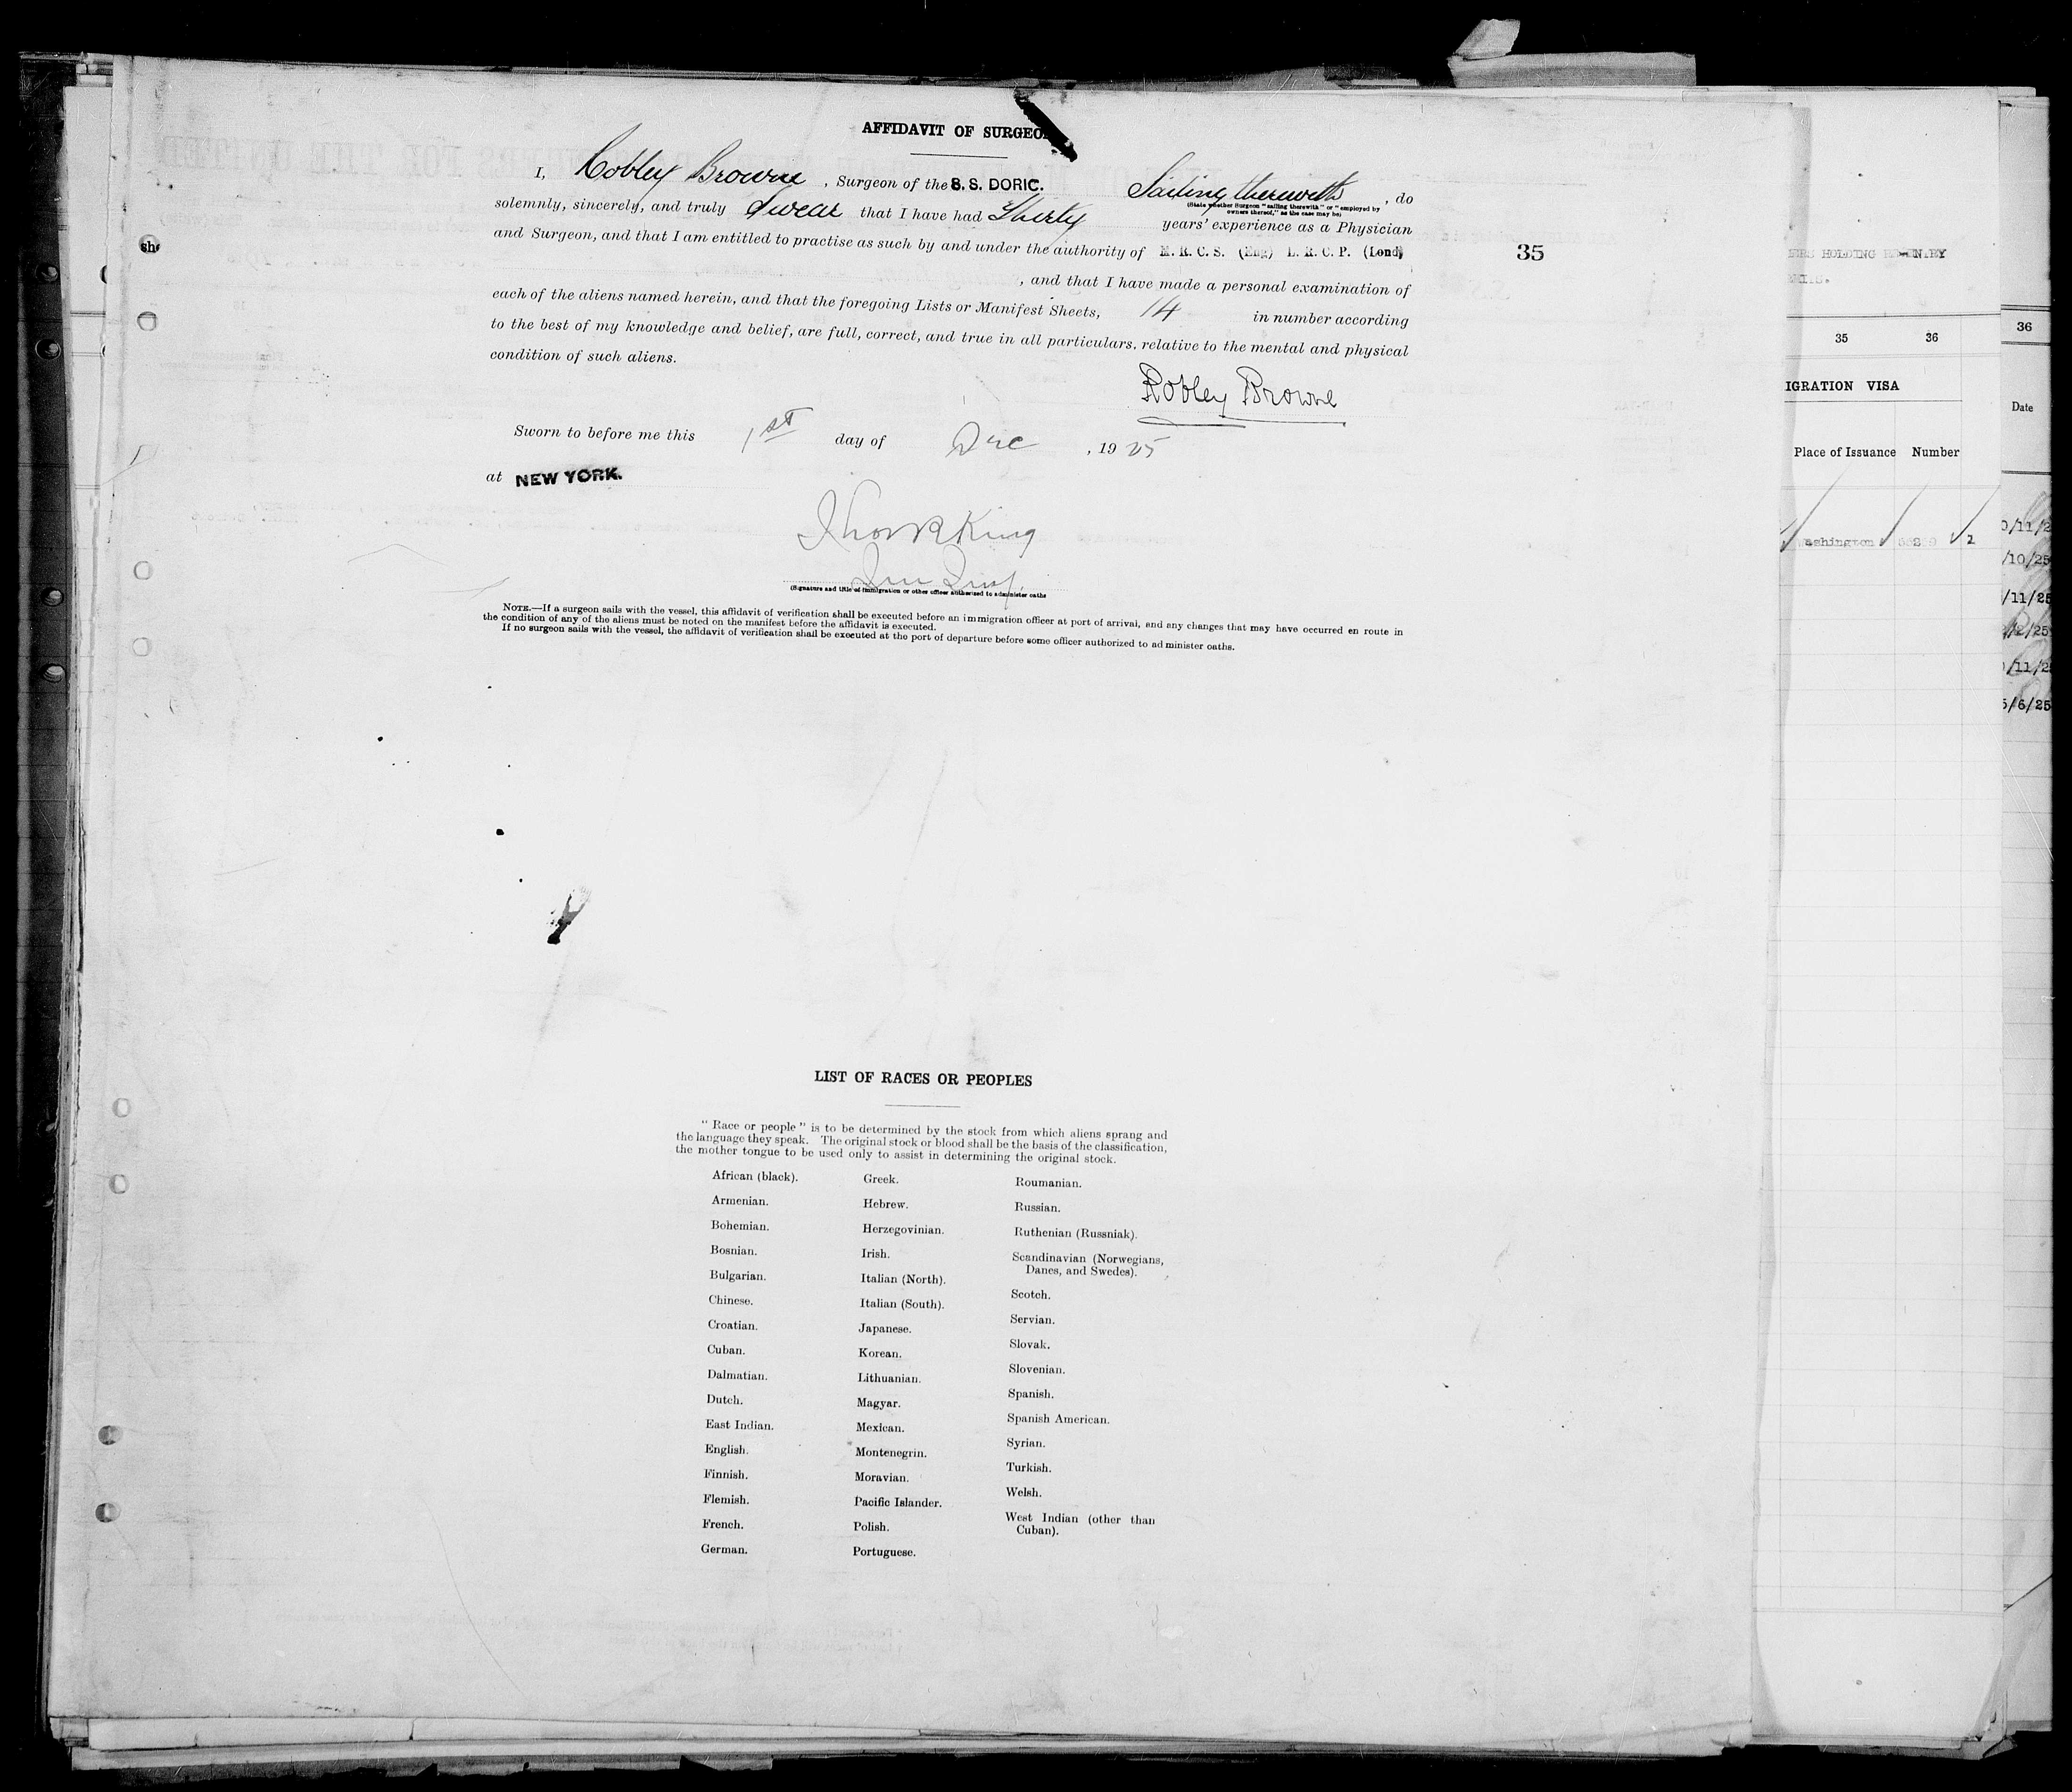 AFFIDAVIT OF SURGEO
I, Robley Browne, Surgeon of the S. S. DORIC. Sailing therewith, do
(State whether Surgeon "sailing therewith" or "employed by
owners thereof," as the case may be)
solemnly, sincerely, and truly Swear that I have had Thirty years' experience as a Physician
and Surgeon, and that I am entitled to practise as such by and under the authority of M. R. C. S. (Eng) L. R. C. P. (Lond)
, and that I have made a personal examination of
each of the aliens named herein, and that the foregoing Lists or Manifest Sheets, 14 in number according
to the best of my knowledge and belief, are full, correct, and true in all particulars, relative to the mental and physical
condition of such aliens.
Robley Browne
Sworn to before me this 1st day of Dec, 1925
at NEW YORK.
King
(Signature and title of immigration or other officer authorized to administer oaths
NOTE.—If a surgeon sails with the vessel, this affidavit of verification shall be executed before an immigration officer at port of arrival, and any changes that may have occurred en route in
the condition of any of the aliens must be noted on the manifest before the affidavit is executed.
If no surgeon sails with the vessel, the affidavit of verification shall be executed at the port of departure before some officer authorized to administer oaths.
35
LIST OF RACES OR PEOPLES
"Race or people" is to be determined by the stock from which aliens sprang and
the language they speak. The original stock or blood shall be the basis of the classification,
the mother tongue to be used only to assist in determining the original stock.
African (black).
Armenian.
Bohemian.
Bosnian.
Bulgarian.
Chinese.
Croatian.
Cuban.
Dalmatian.
Dutch.
East Indian.
English.
Finnish.
Flemish.
French.
German.
Greek.
Hebrew.
Herzegovinian.
Irish.
Italian (North).
Italian (South).
Japanese.
Korean.
Lithuanian.
Magyar.
Mexican.
Montenegrin.
Moravian.
Pacific Islander.
Polish.
Portuguese.
Roumanian.
Russian.
Ruthenian (Russniak).
Scandinavian (Norwegians,
Danes, and Swedes).
Scotch.
Servian.
Slovak.
Slovenian.
Spanish.
Spanish American.
Syrian.
Turkish.
Welsh.
West Indian (other than
Cuban).
HOLDING
35 36
IGRATION VISA
Place of Issuance Number
ashington
36
Date
/11/2
/10/25
/11/25
/2/25
/11/2
/6/25